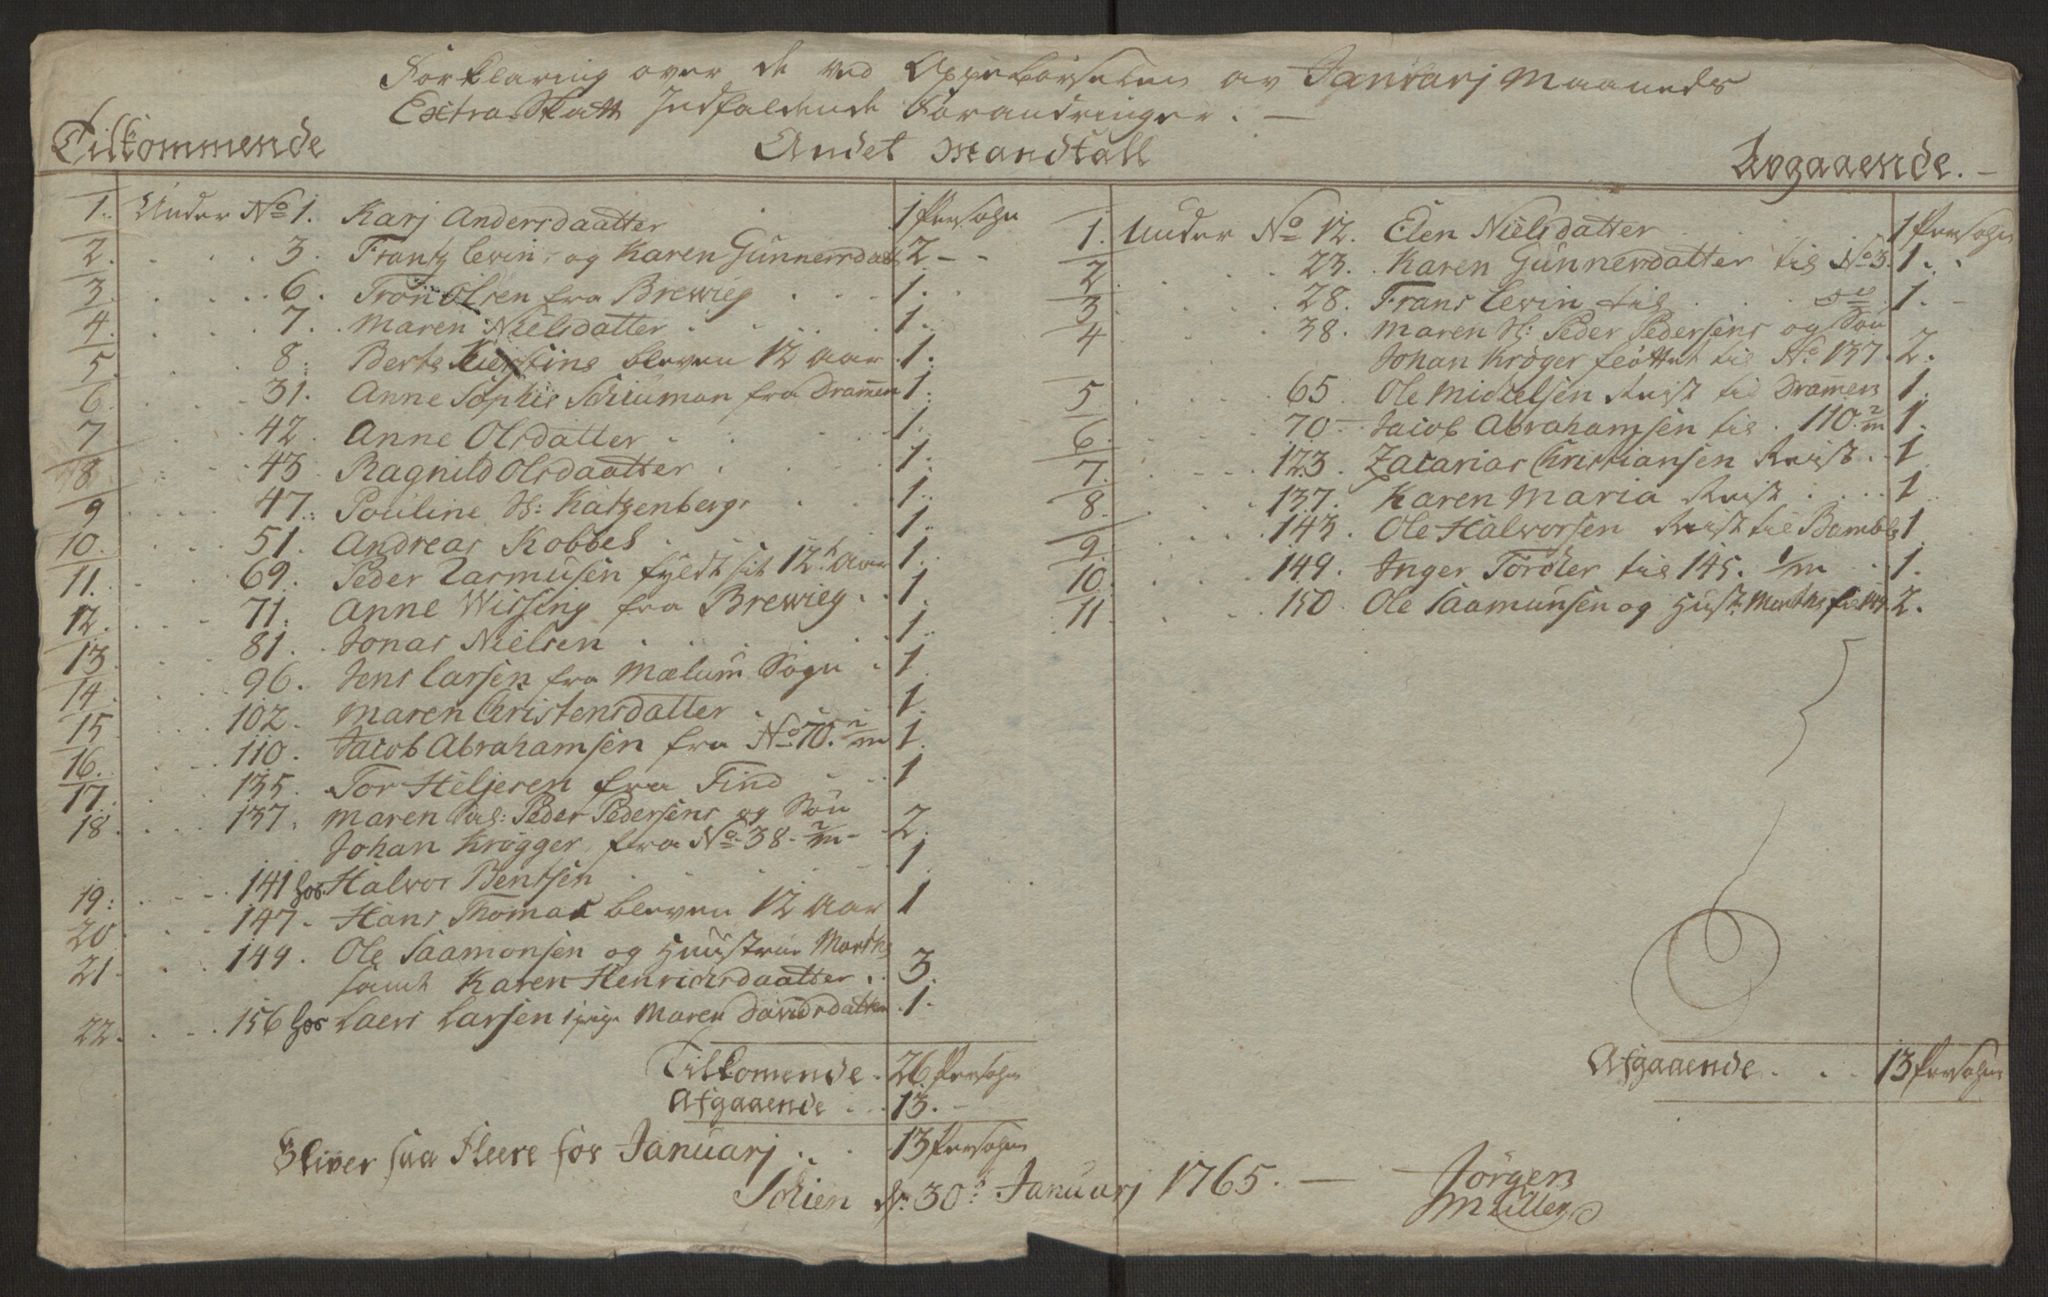 Forklaring over de ved Oppebørselen av Januarj Maaneds
Extra Skatt Indfaldende Forandringer. —
Tilkommende
Andet Mandtall
Avgaaende. —
1. Under No 1. Karj Andersdaatter 1 Persohn
2. 3. Frantz Levin, og Karen Gunnersdatt 2 - -
3. 6. Tron Olsen fra Brewieg 1.
4. 7. Maren Nielsdatter 1.
5. 8. Berte Kierstine bleven 12 Aar 1.
6. 31. Anne Sophie Schuman fra Dramen 1.
7 42. Anne Olsdatter 1.
8 43. Ragnild Olsdaatter 1.
9 47. Pouline H: Katzenbergs 1.
10. 51. Andreas Kobbel 1.
11. 69. Peder Rasmusen fyldt sit 12te Aar 1.
12. 71. Anne Wissing fra Brewieg 1.
13. 81. Jonas Nielsen 1.
14. 96. Jens Larsen fra Mælum Sogn 1.
15. 102. Maren Christensdatter 1.
16. 110. Jacob Abrahamsen fra No 70. 2/m 1.
17. 135. Tor Heljesen fra Find 1
18. 137. Maren Sal: Peder Pedersens og Søn
Johan Krøgger, fra No 38. 2/m 2.
19. 141 hos Halvor Bentsen 1.
20 147. Hans Thomas bleven 12 Aar 1
21. 149. Ole Saamonsen og Huustrue Marthe
samt Karen Henrichsdaatter 3.
22. 156 hos Laers Larsen pige Maren Davidsdatter 1.
Tilkomende 26 Persohn
Afgaaende 13. -
Bliver saa Fleere for Januarj 13 Persohn
1. Under No 12. Elen Nielsdatter 1 Persohn
2 23. Karen Gunnersdatter til No 3. 1.
3 28. Frans Levin til do 1. -
4 38. Maren H: Peder Pedersens og Søn
Johan Krøger fløttet til No 137. 2.
5 65. Ole Michelsen Reist til Dramen 1.
6. 70 - Jacob Abrahamsen til 110. 2/m 1.
7. 123. Zacarias Christiansen Reist 1
8. 137. Karen Maria Reist 1
9. 143. Ole Halvorsen Reist til Bamble 1
10. 149. Inger Torder til 145. 1/m 1.
11 150. Ole Saamunsen og Hust: Marthe til 149 2.
Afgaaende 13 Persohn
Schien d: 30te Januarj 1765. —
Jørgen
Müller